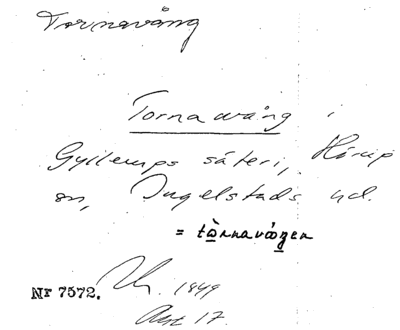 Tornavång
Torna vång i
Gyllerups säteri, Hörup
sn, Ingelstads hd.
= tònnavåŋen
Nr 7572. 1849
Avst 17